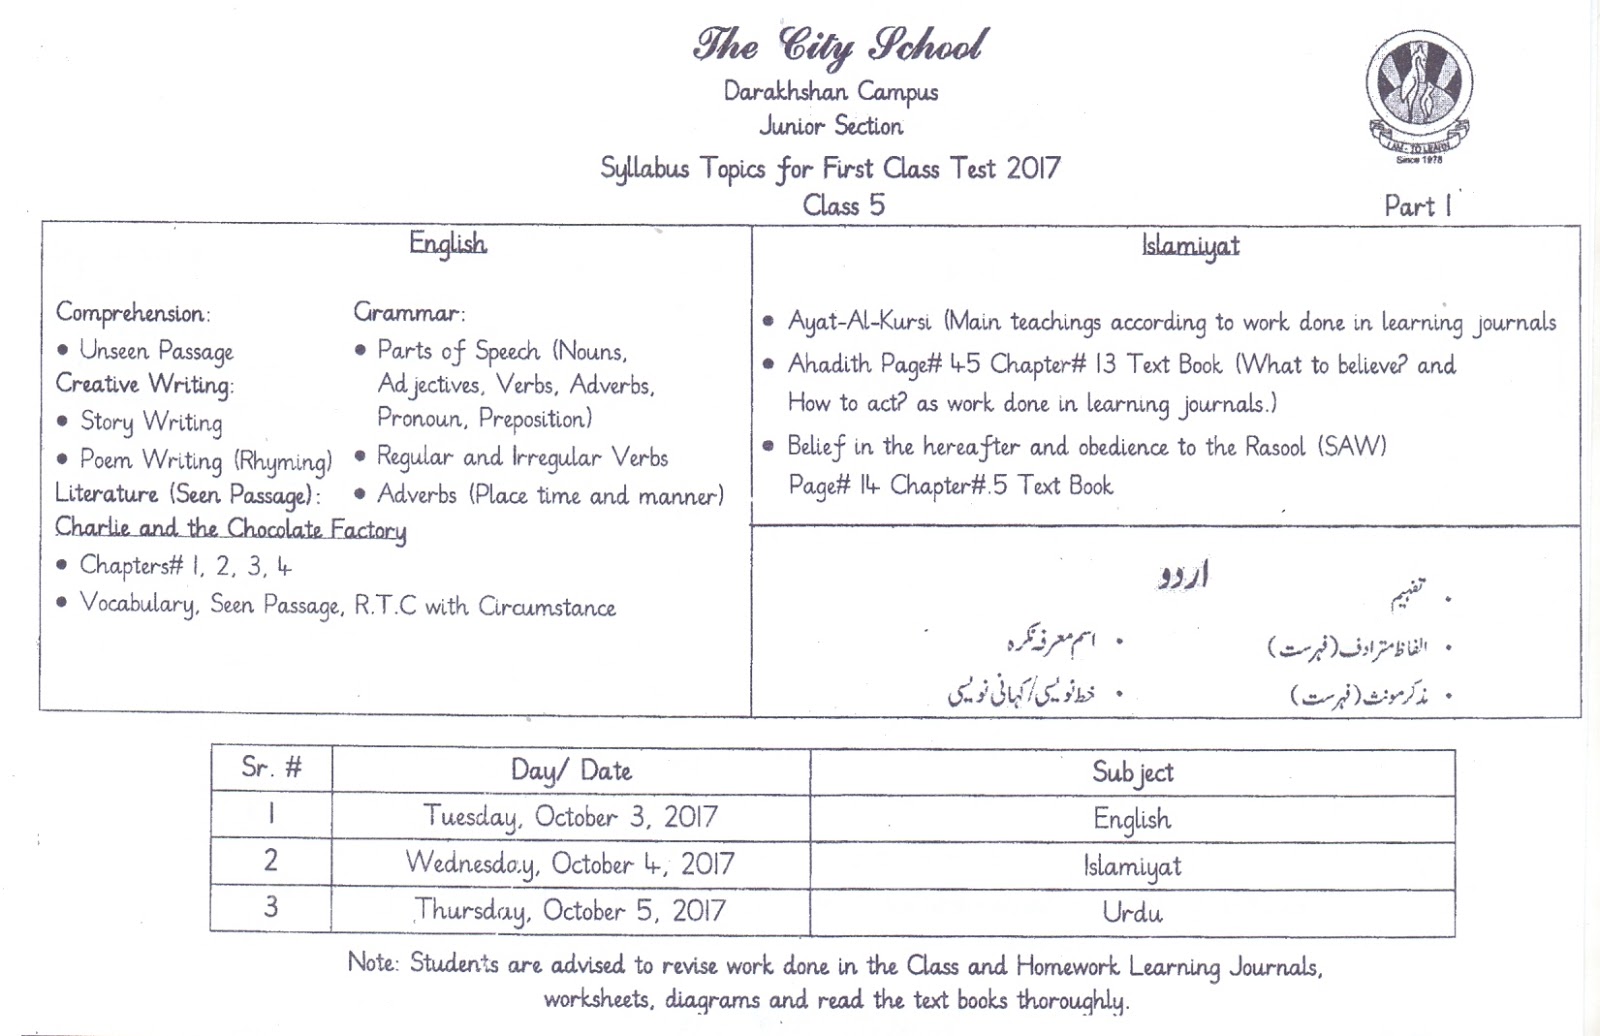 The City School
Darakhshan Campus
Junior Section
Syllabus Topics for First Class Test 2017
Class 5
Part 1
I AM - TO LEARN
Since 1978
English
Comprehension:
• Unseen Passage
Creative Writing:
• Story Writing
• Poem Writing (Rhyming)
Literature (Seen Passage):
Charlie and the Chocolate Factory
• Chapters# 1, 2, 3, 4
• Vocabulary, Seen Passage, R.T.C with Circumstance
Grammar:
• Parts of Speech (Nouns,
Adjectives, Verbs, Adverbs,
Pronoun, Preposition)
• Regular and Irregular Verbs
• Adverbs (Place time and manner)
Islamiyat
• Ayat-Al-Kursi (Main teachings according to work done in learning journals
• Ahadith Page# 45 Chapter# 13 Text Book (What to believe? and
How to act? as work done in learning journals.)
• Belief in the hereafter and obedience to the Rasool (SAW)
Page# 14 Chapter#.5 Text Book
اردو
• تفہیم
• الفاظ مترادف (فہرست)
• مذکر مونث (فہرست)
• اسم معرفہ نکرہ
• خط نویسی/کہانی نویسی
Sr. # Day/ Date Subject
1 Tuesday, October 3, 2017 English
2 Wednesday, October 4, 2017 Islamiyat
3 Thursday, October 5, 2017 Urdu
Note: Students are advised to revise work done in the Class and Homework Learning Journals,
worksheets, diagrams and read the text books thoroughly.